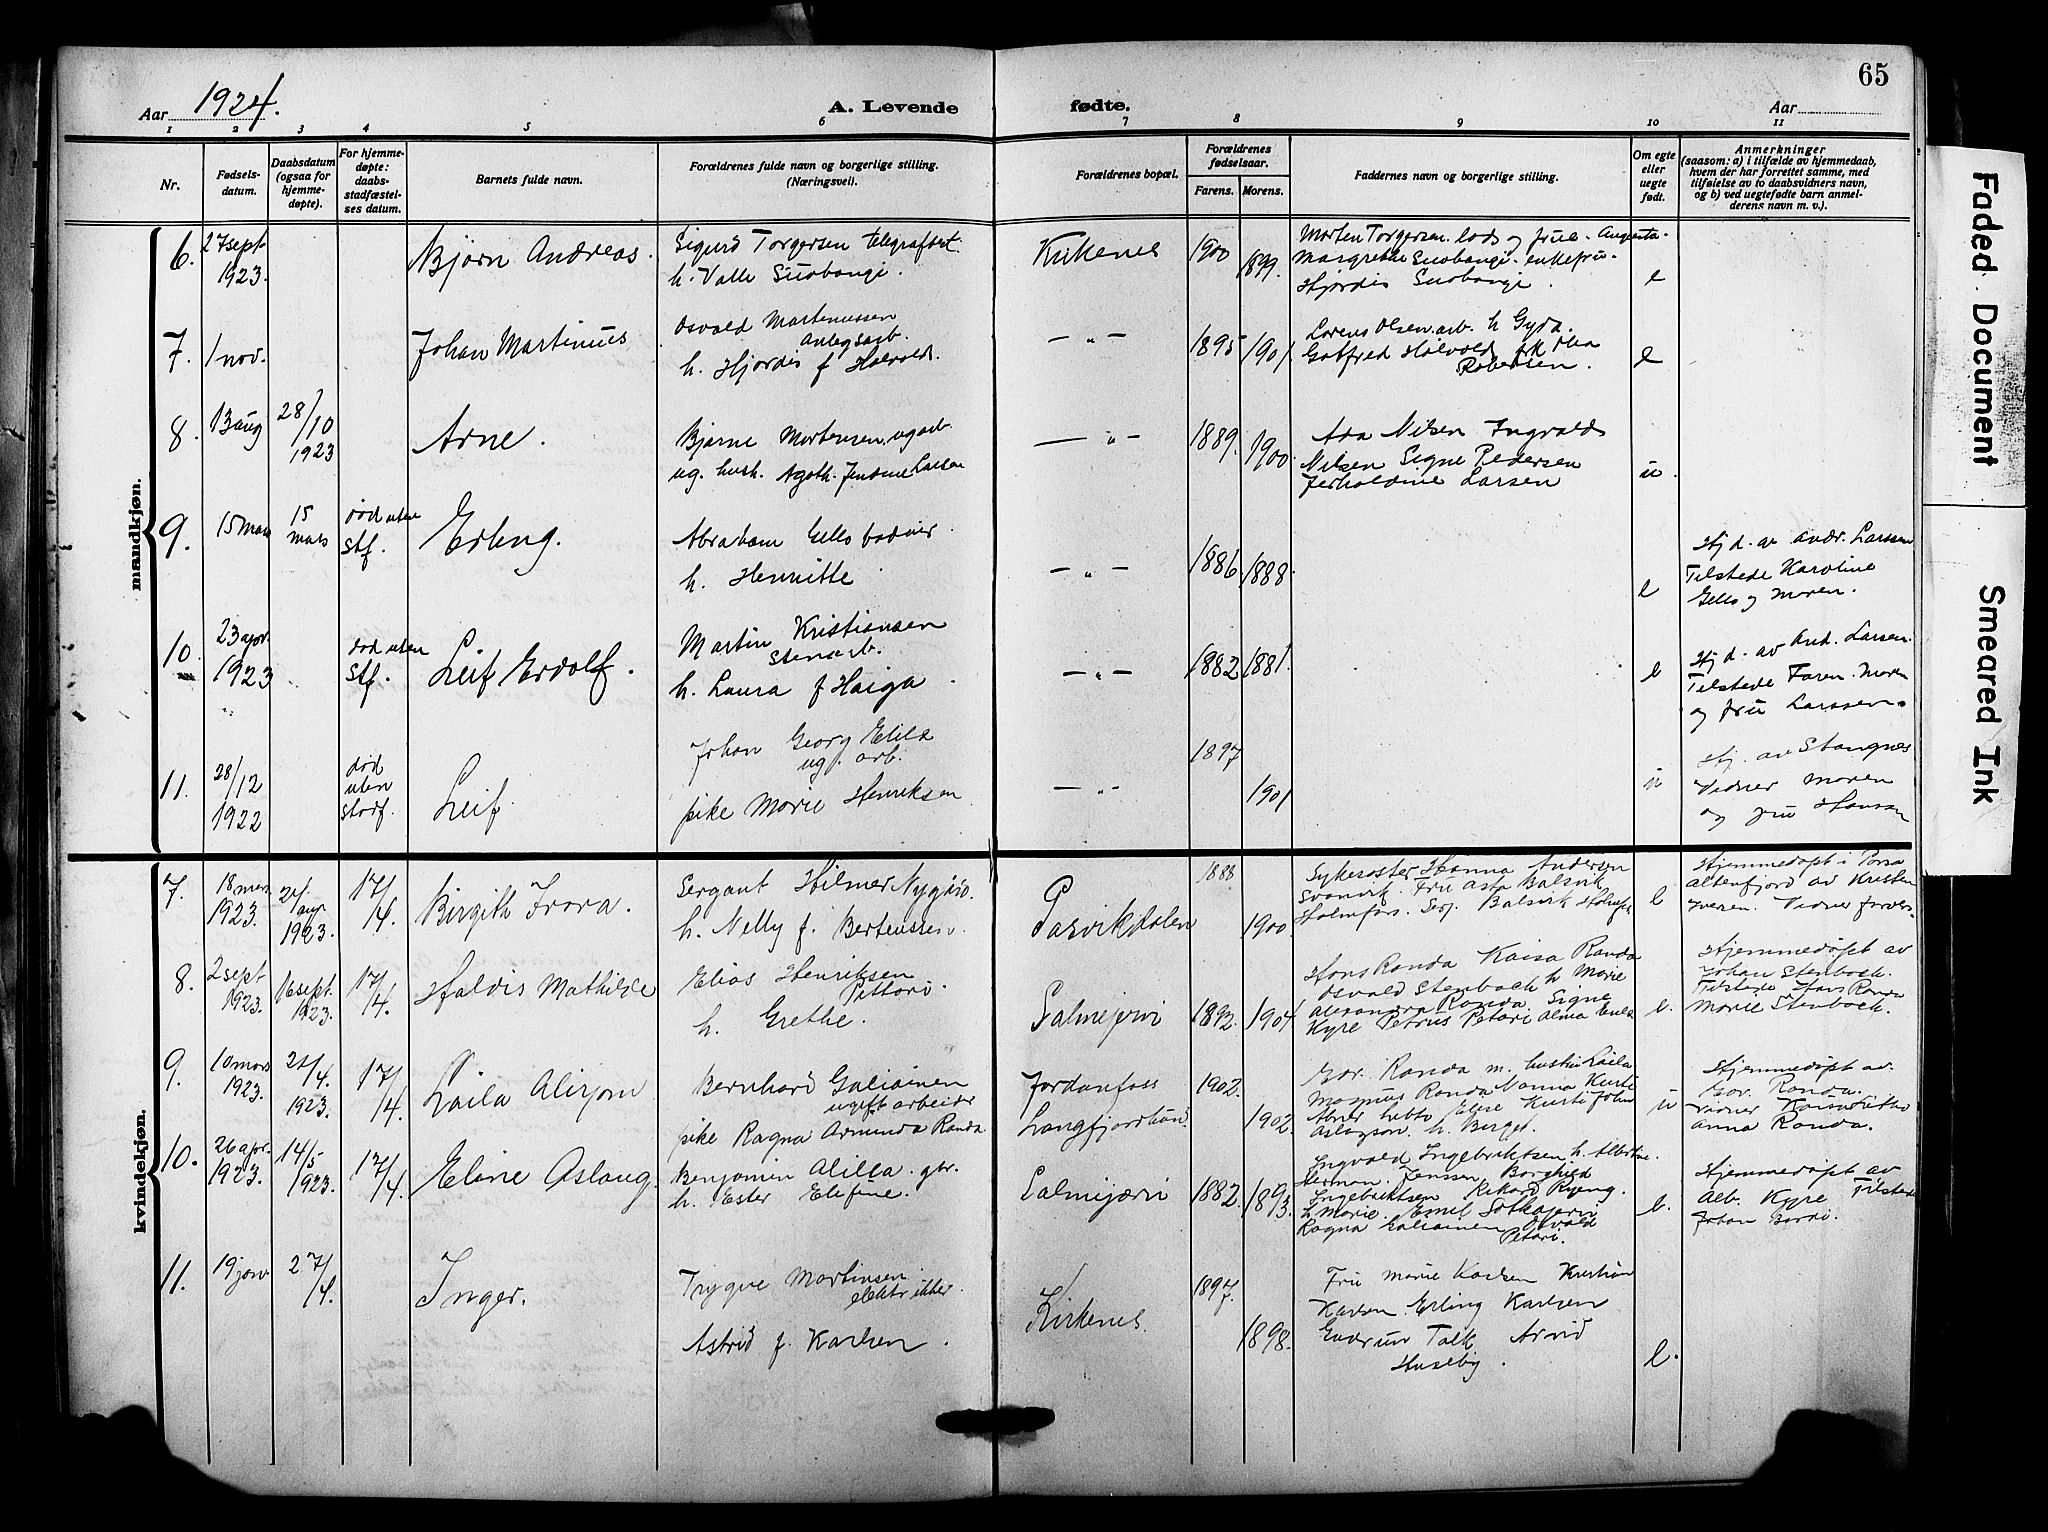 65
Aar 1924.
A. Levende fødte.
Aar
1 2 3 4 5 6 7 8 9 10 11
Nr.
Fødsels-
datum.
Daabsdatum
(ogsaa for
hjemme-
døpte).
For hjemme-
døpte:
daabs-
stadfæstel-
ses datum.
Barnets fulde navn.
Forældrenes fulde navn og borgerlige stilling.
(Næringsvei).
Forældrenes bopæl.
Forældrenes
fødselsaar.
Farens. Morens.
Faddernes navn og borgerlige stilling.
Om egte
eller
uegte
født.
Anmerkninger
(saasom: a) i tilfælde av hjemmedaab,
hvem der har forrettet samme, med
tilføielse av to daabsvidners navn,
og b) ved uegtefødte barn anmel-
derens navn m. v.).
mandkjøn.
6.
27 sept
1923.
Bjørn Andreas.
Sigurd Torgersen telegrafbest.
h. Valle Suobangi.
Kirkenes
1900
1899.
Morten Torgersen lods og frue. Augusta.
Margrethe Suobangi. enkefru.
Hjørdis Suobangi.
e
7.
1 nov.
Johan Martinus
Osvald Martinussen
Anlegsarb.
h. Hjørdis f
— „ —
1895
1901
Lorens Olsen arb. h Gyda.
Gotfred
Robertsen.
e
8.
13 aug
28/10
1923
Arne.
Bjarne Mortensen, ug arb.
ug. hush. Agoth. Larsen
— „ —
1889.
1900
Ada Nilsen Ingvald
Nilsen Signe Pedersen
Larsen
u
9.
15 mars
15
mars
død uten
Stf.
Erling.
Abraham
h. Henriette
— „ —
1886
1888
e
Hj d. av andr. Larssen
Tilstede Karoline
og Moren.
10
23 apr.
1923
død uten
Stf.
Leif Erdolf.
Martin Kristiansen
Stenarb.
h. Laura f Haiga.
— „ —
1882
1881.
e
Hj d. av And. Larsen.
Tilstede Faren. Moren
og fru Larssen.
11.
28/12
1922
død
uten
Stadf.
Leif.
Johan Georg
ug. arb.
pike Marie Henriksen
— „ —
1897
1901
u
Hj. av Stangnes
Vidner Moren
og fru Hansen
kvindekjøn.
7.
18 mars
1923.
1923.
17/4.
Birgith Frora.
Sergant Hilmer Nygård.
h. Nelly f. Bertenssen.
Pasvikdalen
1888
1900
Sykesøster Hanna Andersen
Svanvik. Fru Asta Balsvik
Holmfoss. Serj. Balsvik
e
Hjemmedøpt i
Altenfjord av Kristen
Iversen. Vidner
8.
2 sept
1923.
16 sept.
1923.
17/4.
Haldis Mathilde
Elias Henriksen
Pittari.
h. Grethe.
Salmejervi
1892.
1904
Hans Randa Kaisa Randa
Osvald Stenbach h Marie
Alexandra Randa Signe
Kyrø Petrus Petari Alma
e.
Hjemmedøpt av
Johan Stenbach.
Tilstede Hans Randa
Marie Stenbach.
9.
10 mars
1923.
21/4.
1923.
17/4.
Laila Alizom
Bernhard Galiainen
ugift arbeider
pike Ragna Armunda Randa
Jordanfoss
Langfjordbund
1902.
1902.
Randa m. hustru Laila
Magnus Randa Nanna
Abner Elise Johan
Aslagson. h. Berget.
u
Hjemmedøpt av.
Randa.
Vidner
Anna Randa.
10.
26 apr.
1923.
14/5
1923.
17/4.
Eline Aslaug.
Benjamin Alilla. gbr.
h. Ester Elefine.
Salmijærvi
1882.
1893.
Ingvald Ingebriktsen h. Albertine.
Herman Jenssen Borghild
Ingebriktsen Rikard Ryeng.
h. Marie. Emil Sotkajervi
Ragna Galiainen Osvald
Petari.
e.
Hjemmedøpt av
Alb. Kyrø Tilstede
Johan
11.
19 jan.
27/4.
Inger.
Trygve Martinsen
elektriker.
Astrid f. Karlsen.
Kirkenes
1897.
1898.
Fru Marie Karlsen Kristian
Karlsen. Erling Karlsen
Gudrun Talk Arvid
Huseby.
e.
Faded Document
Smeared Ink